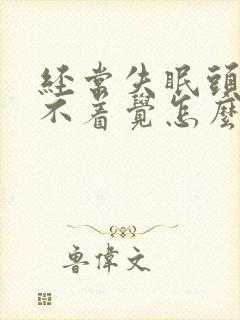 經常失眠頭
不着覺怎麼
魯偉文